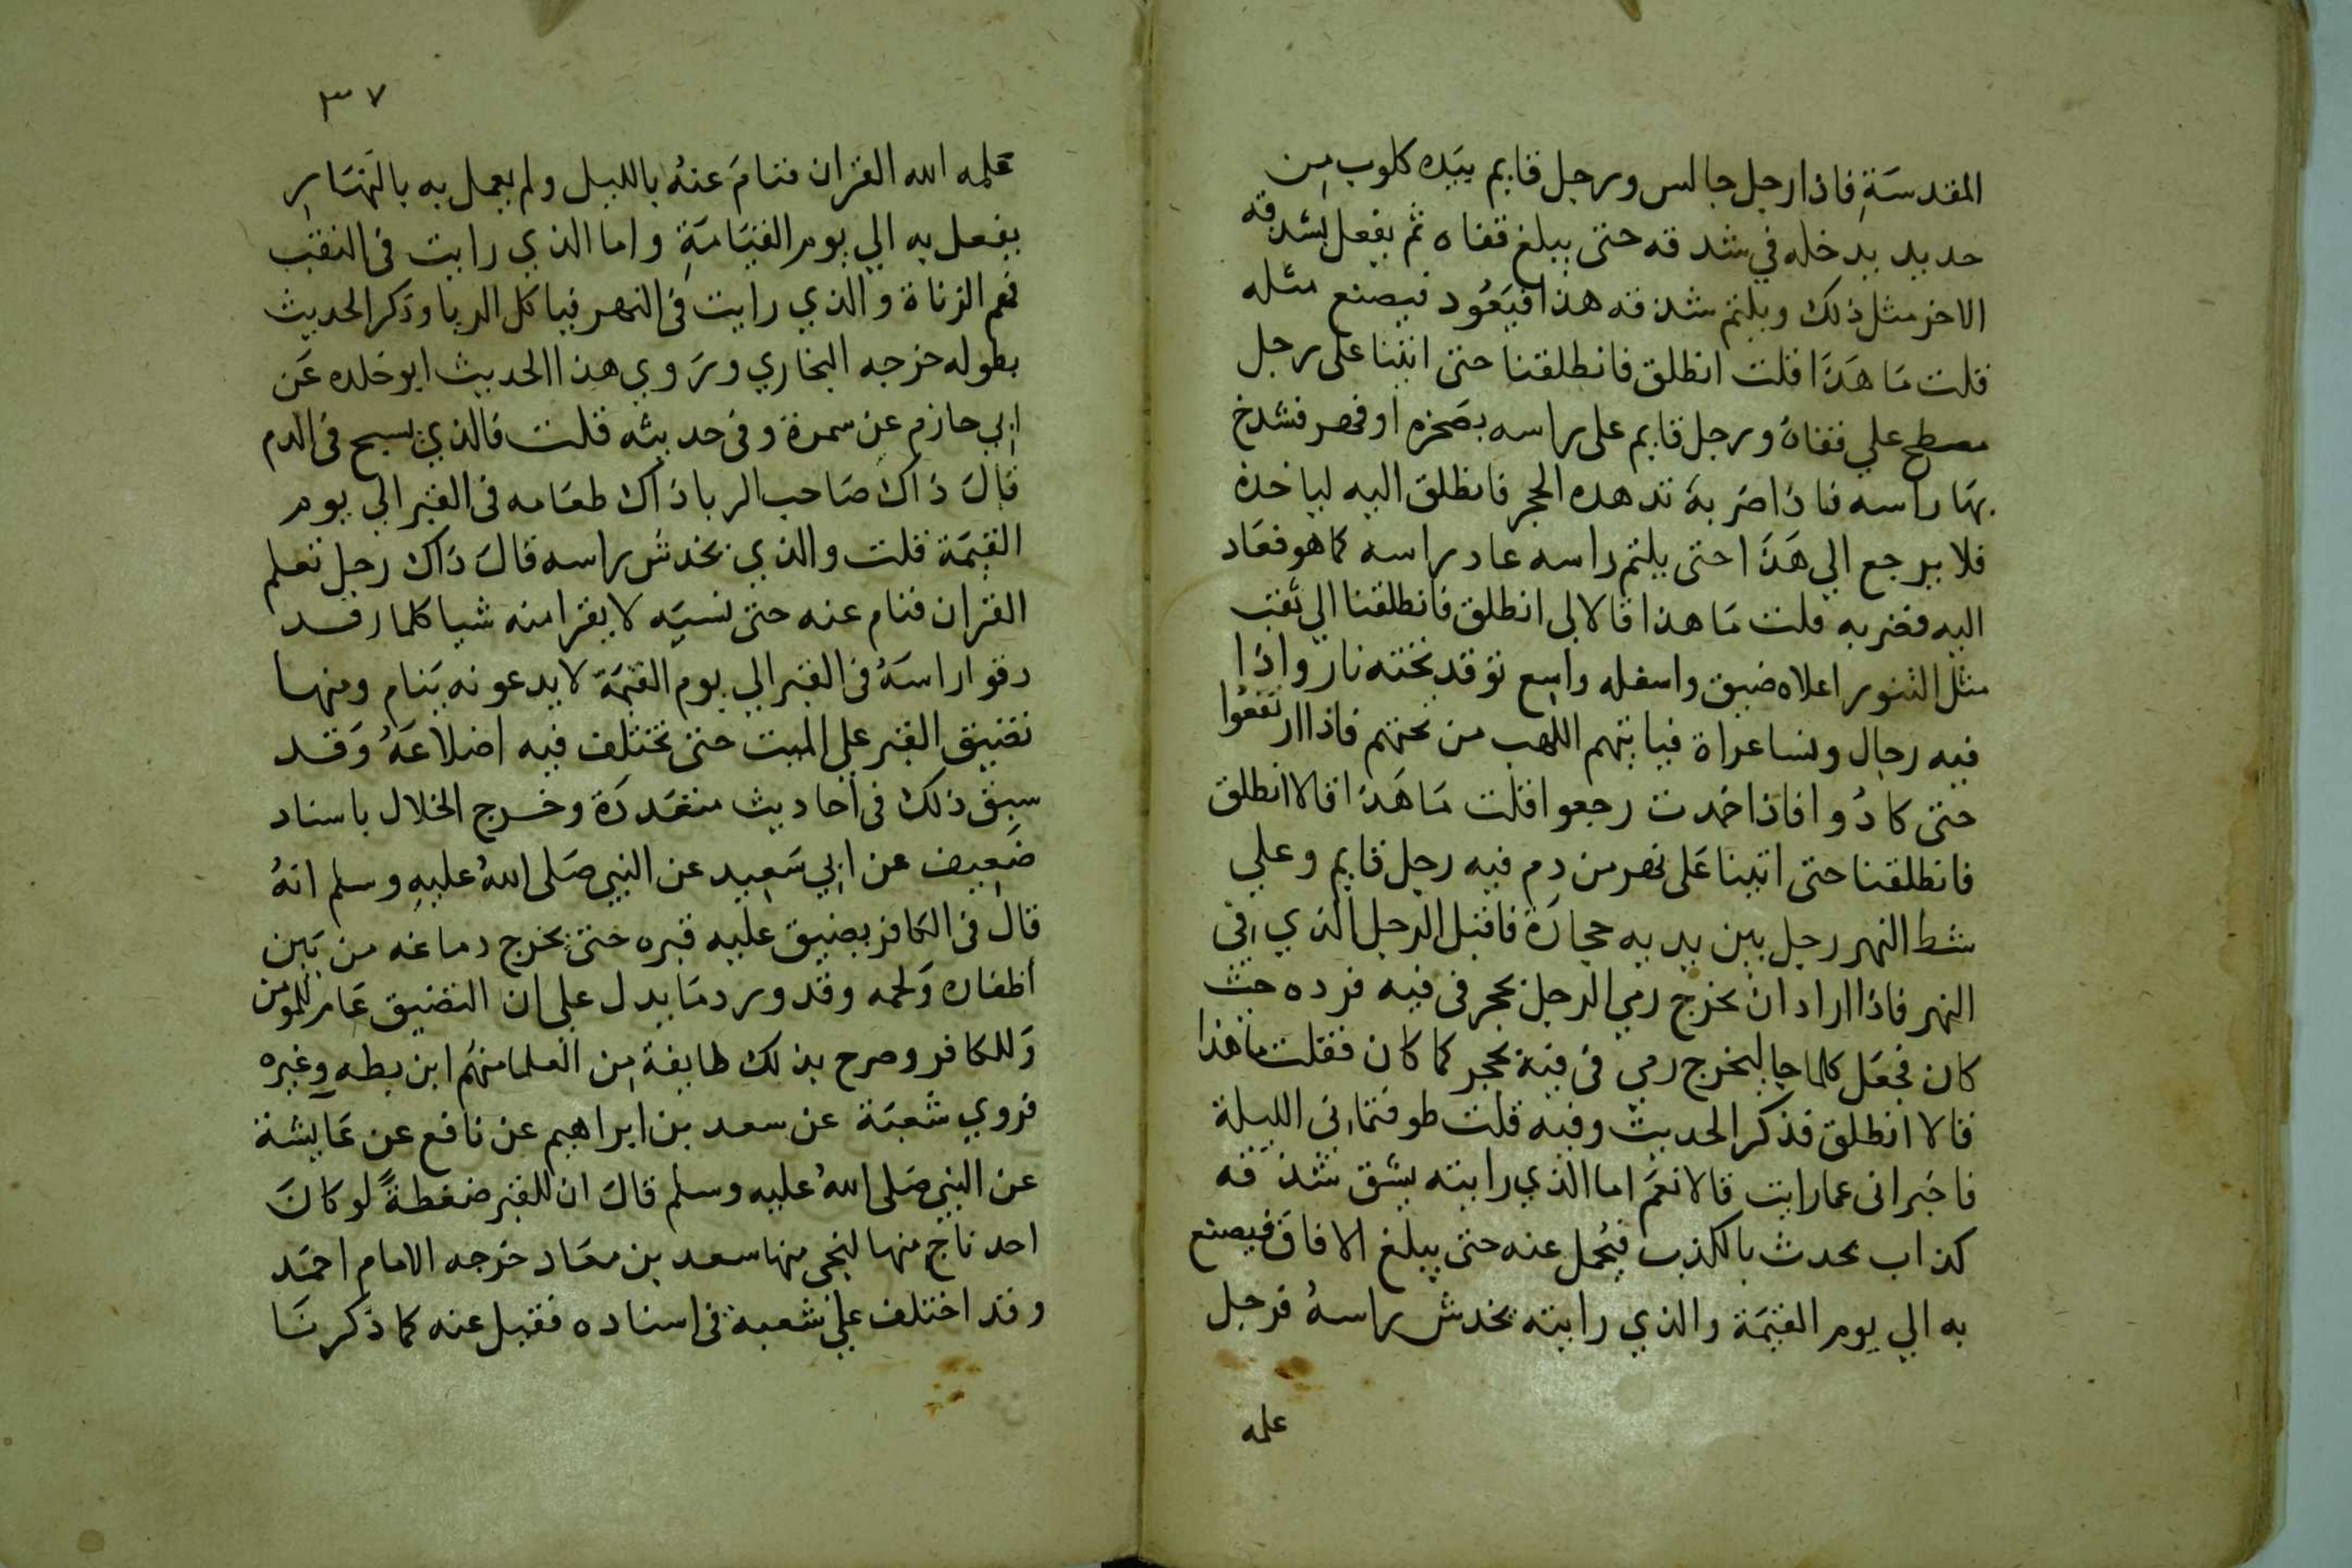 المقدسَةِ فاذا رجل جالس ورجل قايم بيَده كلوب مِن
حديد يدخله في شدقه حتى يبلغ قفاه ثم يفعل بشدقه
الاخر مثل ذلك ويلتم شدقه هذا فيَعُود فيصنع مثله
قلت مَا هَذَا قلت انطلق فانطلقنا حتى اتينا على رجل
مصطح علي قفاهُ ورجل قايم على راسه بصَخره او فهر فشدخ
بهَا راسه فاذا ضربهُ تدهده الحجر فانطلق اليه لياخذه
فلا يرجع الي هَذَا حتى يلتم راسه عاد راسه كما هو فعَاد
اليه فضربه قلت مَا هذا قالا لى انطلق فانطلقنا الي ثقب
مثل التنور اعلاه ضيق واسفله واسع توقد تحته نار واذا
فيه رجال ونسا عراة فياتيهم اللهب من تحتهم فاذا ارتفعُوا
حتى كادُوا فاذا خمدت رجعوا قلت مَا هَذا قالا انطلق
فانطلقنا حتى اتينا عَلى نهر من دم فيه رجل قايم وعلي
شط النهر رجل بين يديه حجارَة فاقبل الرجل الذي في
النهر فاذا اراد ان يخرج رمي الرجل بحجر فى فيه فرده حيث
كان فجعَل كلما جا ليخرج رمي فى فيه بحجر كما كان فقلت ما هذا
قالا انطلق فذكر الحديث وفيه قلت طوفتمانى الليلة
فاخبرانى عما رايت قالا نعَم اما الذي رايته يشق شدقه
كذاب يحدث بالكذب فيُحمل عنه حتى يبلغ الافاق فيصنع
به الي يوم القيمَة والذي رايته يخدش راسهُ فرجل
علمه
٣٧
عَلمه الله القران فنامَ عنهُ بالليل ولم يعمل به بالنهَار
يفعل به الي يوم القيَامَةِ واما الذي رايت فى النقب
فهم الزناة والذي رايت فى النهر فياكل الربا وذكر الحديث
بطوله خرجه البخاري ورَوي هذا الحديث ابو خلده عَن
ابي حازم عن سمرة وفى حديثه قلت فالذي يسبح فى الدم
قالَ ذاكَ صَاحب الربا ذاك طعَامه فى القبر الي يوم
القيمَة قلت والذي يخدش راسه قالَ ذاك رجل تعلم
القران فنام عنه حتى نسيَه لا يقرا منه شيا كلما رقد
دقوا راسَهُ فى القبر الي يوم القيمَة لا يدعونه يَنام ومنها
تضييق القبر على الميت حتى تختلف فيه اضلاعَهُ وَقد
سبق ذلك فى احاديث متعَددَة وخرج الخلال باسناد
ضَعيف عن ابي سَعيد عن النبي صَلى اللهُ عليهِ وسلم انهُ
قال فى الكافر يضيق عليه قبره حتى يخرج دماغه من بَين
اظفاره وَلحمه وقد ورد مَا يدل على ان التضيق عَام للمومن
وَللكافر وصرح بذلك طايفة مِن العلما منهُم ابن بطه وغيره
فروي شعبَة عن سعد بن ابراهيم عن نافع عن عَايشة
عن النبي صَلى اللهُ عليه وسلم قالَ ان للقبر ضغطةً لو كانَ
احد ناج منها لنجى منها سعد بن معَاد خرجه الامام احمَد
وقد اختلف علي شعبة فى اسناده فقيل عنه كما ذكرنَا